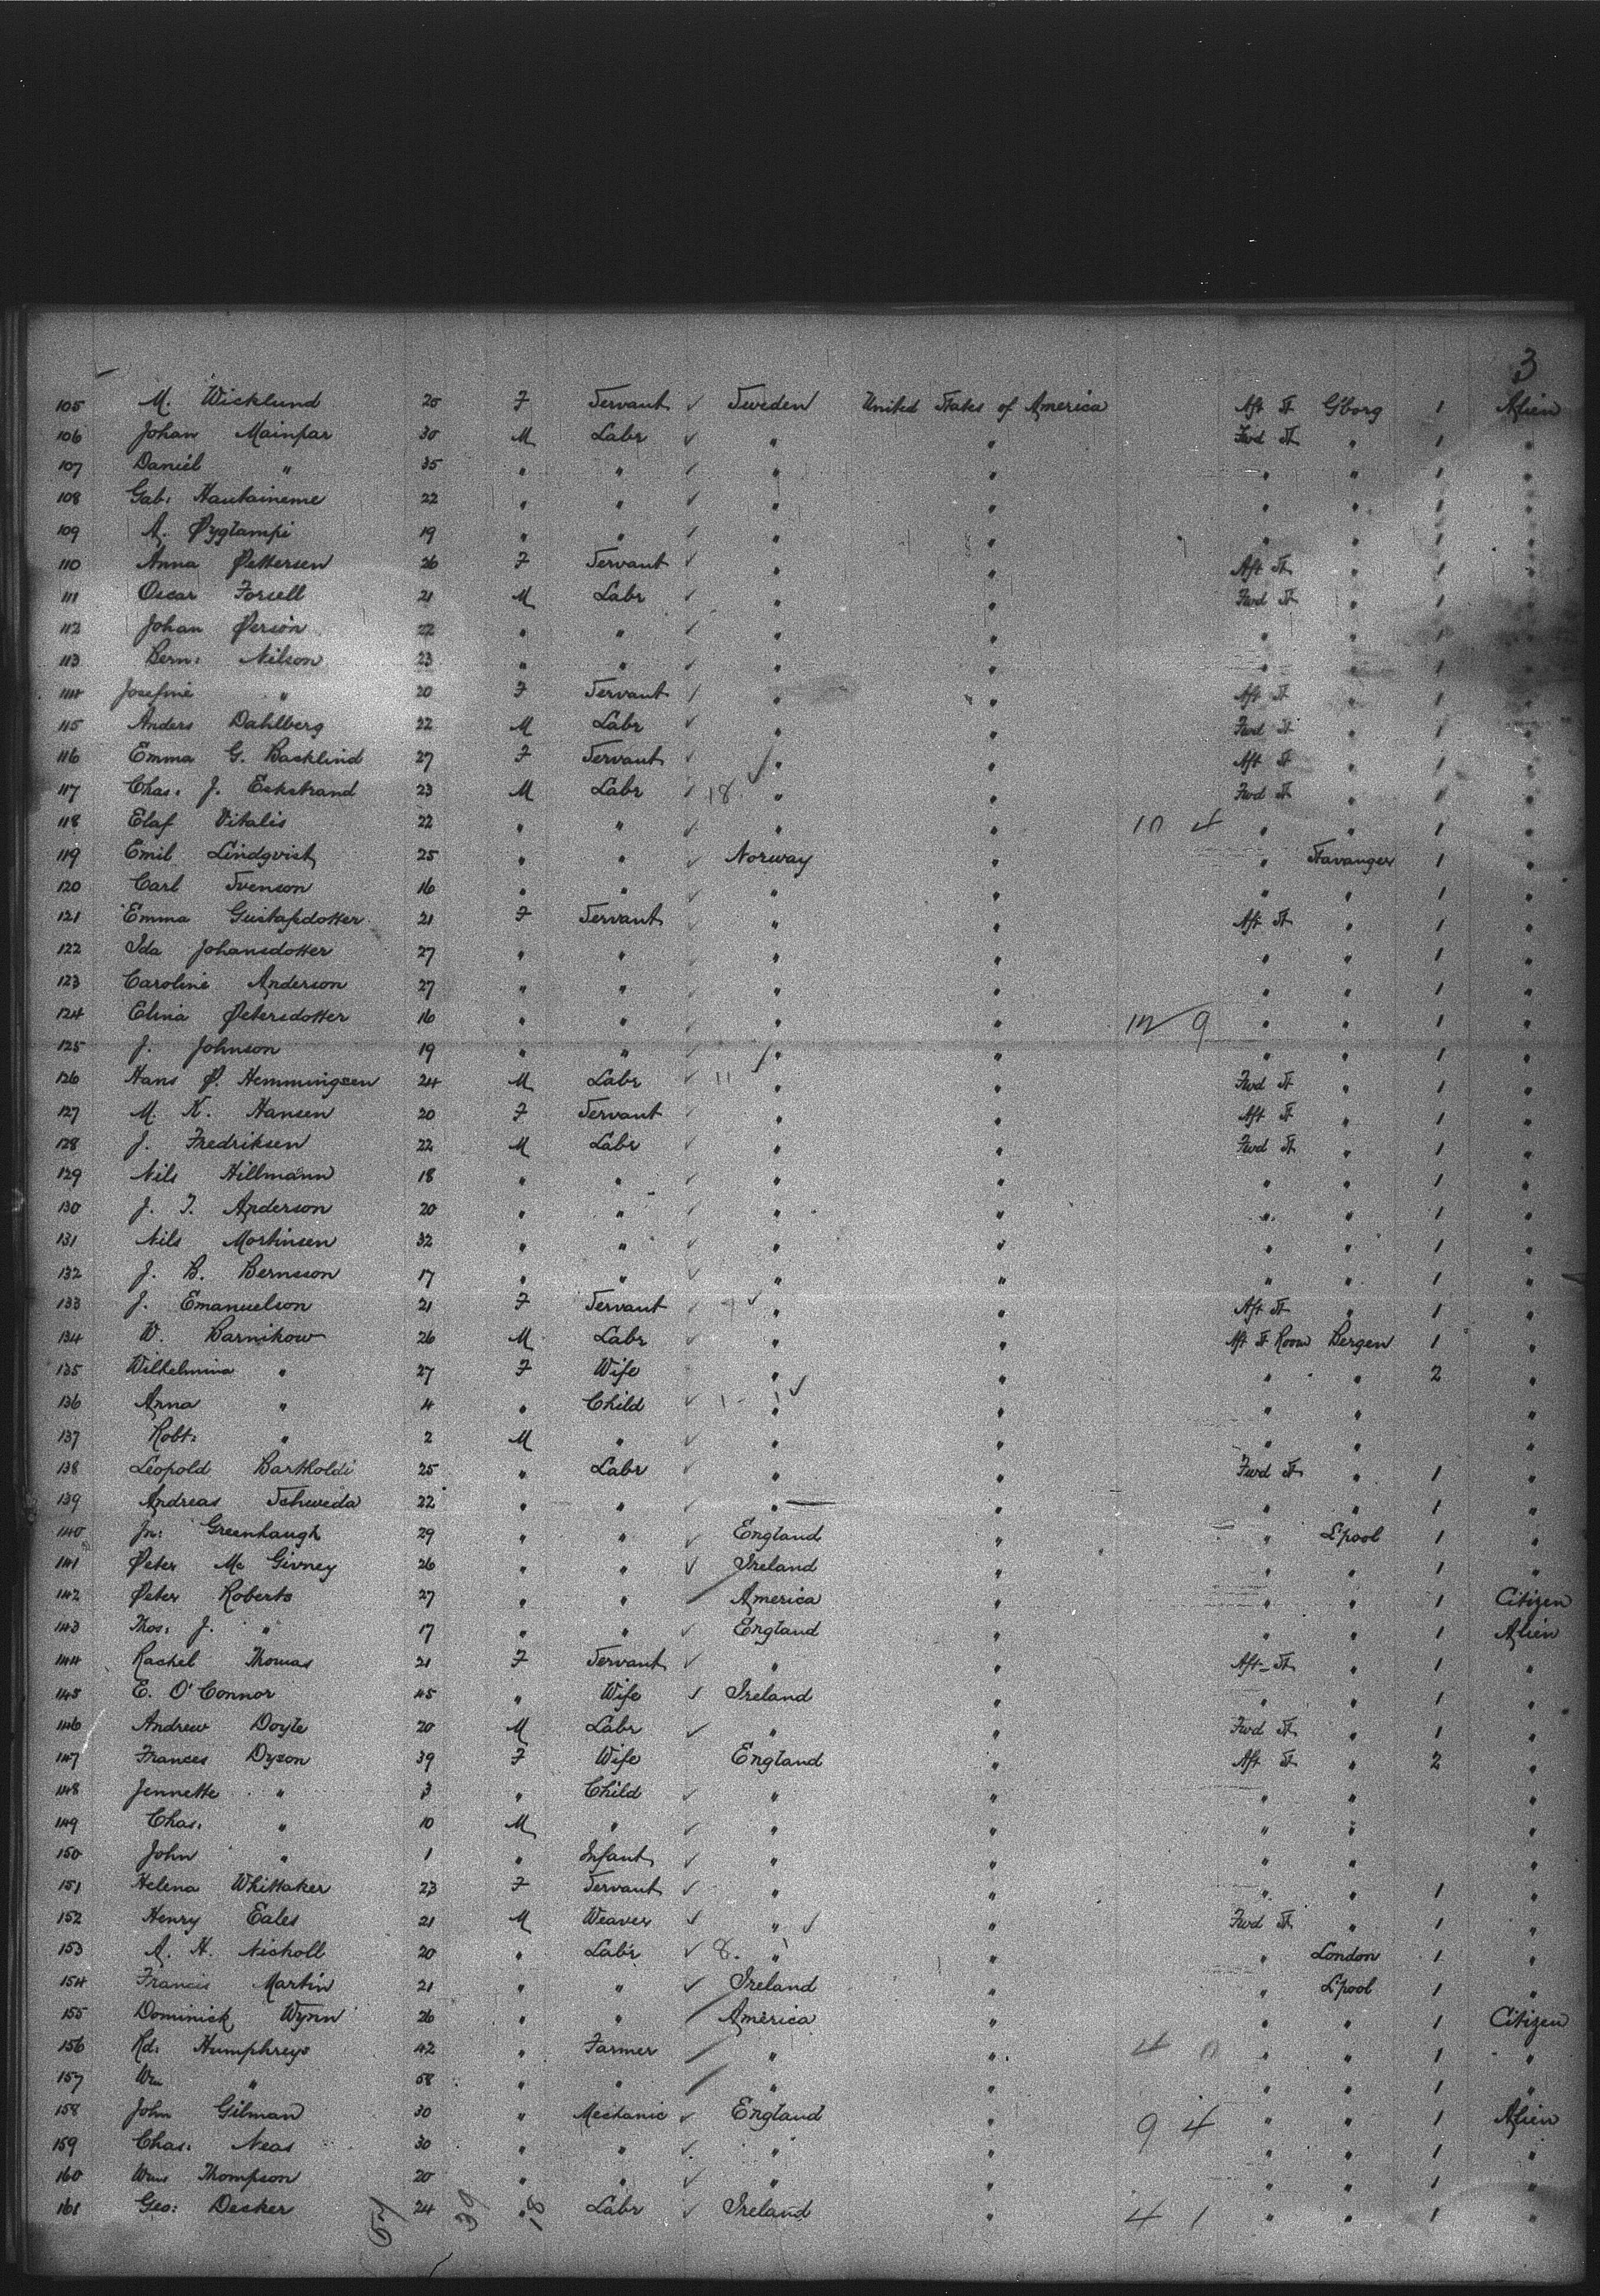 3
105 M. Wicklund 25 F Servant ✓ Sweden United States of America Aft St G'borg 1 Alien
106 Johan Mainpar 30 M Labr ✓ " " Fwd St " 1 "
107 Daniel " 35 " " ✓ " " " " 1 "
108 Gab: Hautaineme 22 " " ✓ " " " " 1 "
109 A. 19 " " ✓ " " " " 1 "
110 Anna Pettersen 26 F Servant ✓ " " Aft St " 1 "
111 Oscar Forsell 21 M Labr ✓ " " Fwd St " 1 "
112 Johan Person 22 " " ✓ " " " " 1 "
113 Bern: Nilson 23 " " ✓ " " " " 1 "
114 Josefine " 20 F Servant / " " Aft St " 1 "
115 Anders Dahlberg 22 M Labr ✓ " " Fwd St " 1 "
116 Emma G. Backlind 27 F Servant ✓ " " Aft St " 1 "
117 Chas: J. Eckstrand 23 M Labr ✓ 18 " " Fwd St " 1 "
118 Elaf Vitalis 22 " " ✓ " " 10 4 " " 1 "
119 Emil Lindqvist 25 " " ✓ Norway " " Stavanger 1 "
120 Carl Svenson 16 " " ✓ " " " " 1 "
121 Emma Gustafsdotter 21 F Servant ✓ " " Aft St " 1 "
122 Ida Johansdotter 27 " " ✓ " " " " 1 "
123 Caroline Anderson 27 " " ✓ " " " " 1 "
124 Elina Petersdotter 16 " " ✓ " " 12 9 " " 1 "
125 J. Johnson 19 " " ✓ " " " " 1 "
126 Hans P. Hemmingsen 24 M Labr ✓ 11 " " Fwd St " 1 "
127 M. K. Hansen 20 F Servant ✓ " " Aft St " 1 "
128 J. Fredriksen 22 M Labr ✓ " " Fwd St " 1 "
129 Nils Hillmann 18 " " ✓ " " " " 1 "
130 J. T. Anderson 20 " " ✓ " " " " 1 "
131 Nils Mortinsen 32 " " ✓ " " " " 1 "
132 J. B. Bernsson 17 " " ✓ " " " " 1 "
133 J. Emanuelson 21 F Servant ✓ " " Aft St " 1 "
134 W. Barnikow 26 M Labr ✓ " " Aft St Room Bergen 1 "
135 Wilhelmina " 27 F Wife ✓ " " " " 2 "
136 Anna " 4 " Child ✓ " " " " "
137 Robt: " 2 M " ✓ " " " " "
138 Leopold Bartholdi 25 " Labr ✓ " " Fwd St " 1 "
139 Andreas Schweda 22 " " ✓ " " " " 1 "
140 Jn: Greenhaugh 29 " " ✓ England " " L'pool 1 "
141 Peter Mc Givney 26 " " ✓ Ireland " " " 1 "
142 Peter Roberts 27 " " / America " " " 1 Citizen
143 Thos: J. " 17 " " ✓ England " " " 1 Alien
144 Rachel Thomas 21 F Servant ✓ " " Aft St " 1 "
145 E. O'Connor 45 " Wife ✓ Ireland " " " 1 "
146 Andrew Doyle 20 M Labr ✓ " " Fwd St " 1 "
147 Frances Dyson 39 F Wife England " Aft St " 2 "
148 Jennette " 3 " Child ✓ " " " " "
149 Chas: " 10 M " ✓ " " " " "
150 John " 1 " Infant ✓ " " " " "
151 Helena Whittaker 23 F Servant ✓ " " " " 1 "
152 Henry Eales 21 M Weaver ✓ " " Fwd St " 1 "
153 A. H. Nicholl 20 " Labr ✓ 8 " " " London 1 "
154 Francis Martin 21 " " ✓ Ireland " " L'pool 1 "
155 Dominick Wynn 26 " " / America " " " 1 Citizen
156 Rd: Humphreys 42 " Farmer / " " 4 0 " " 1 "
157 Wm " 58 " " / " " " " 1 "
158 John Gilman 30 " Mechanic ✓ England " 9 4 " " 1 Alien
159 Chas: Neas 30 " " ✓ " " " " 1 "
160 Wm Thompson 20 " " ✓ " " " " 1 "
161 Geo: Decker 24 " Labr ✓ Ireland " 4 1 " " 1 "
39 18